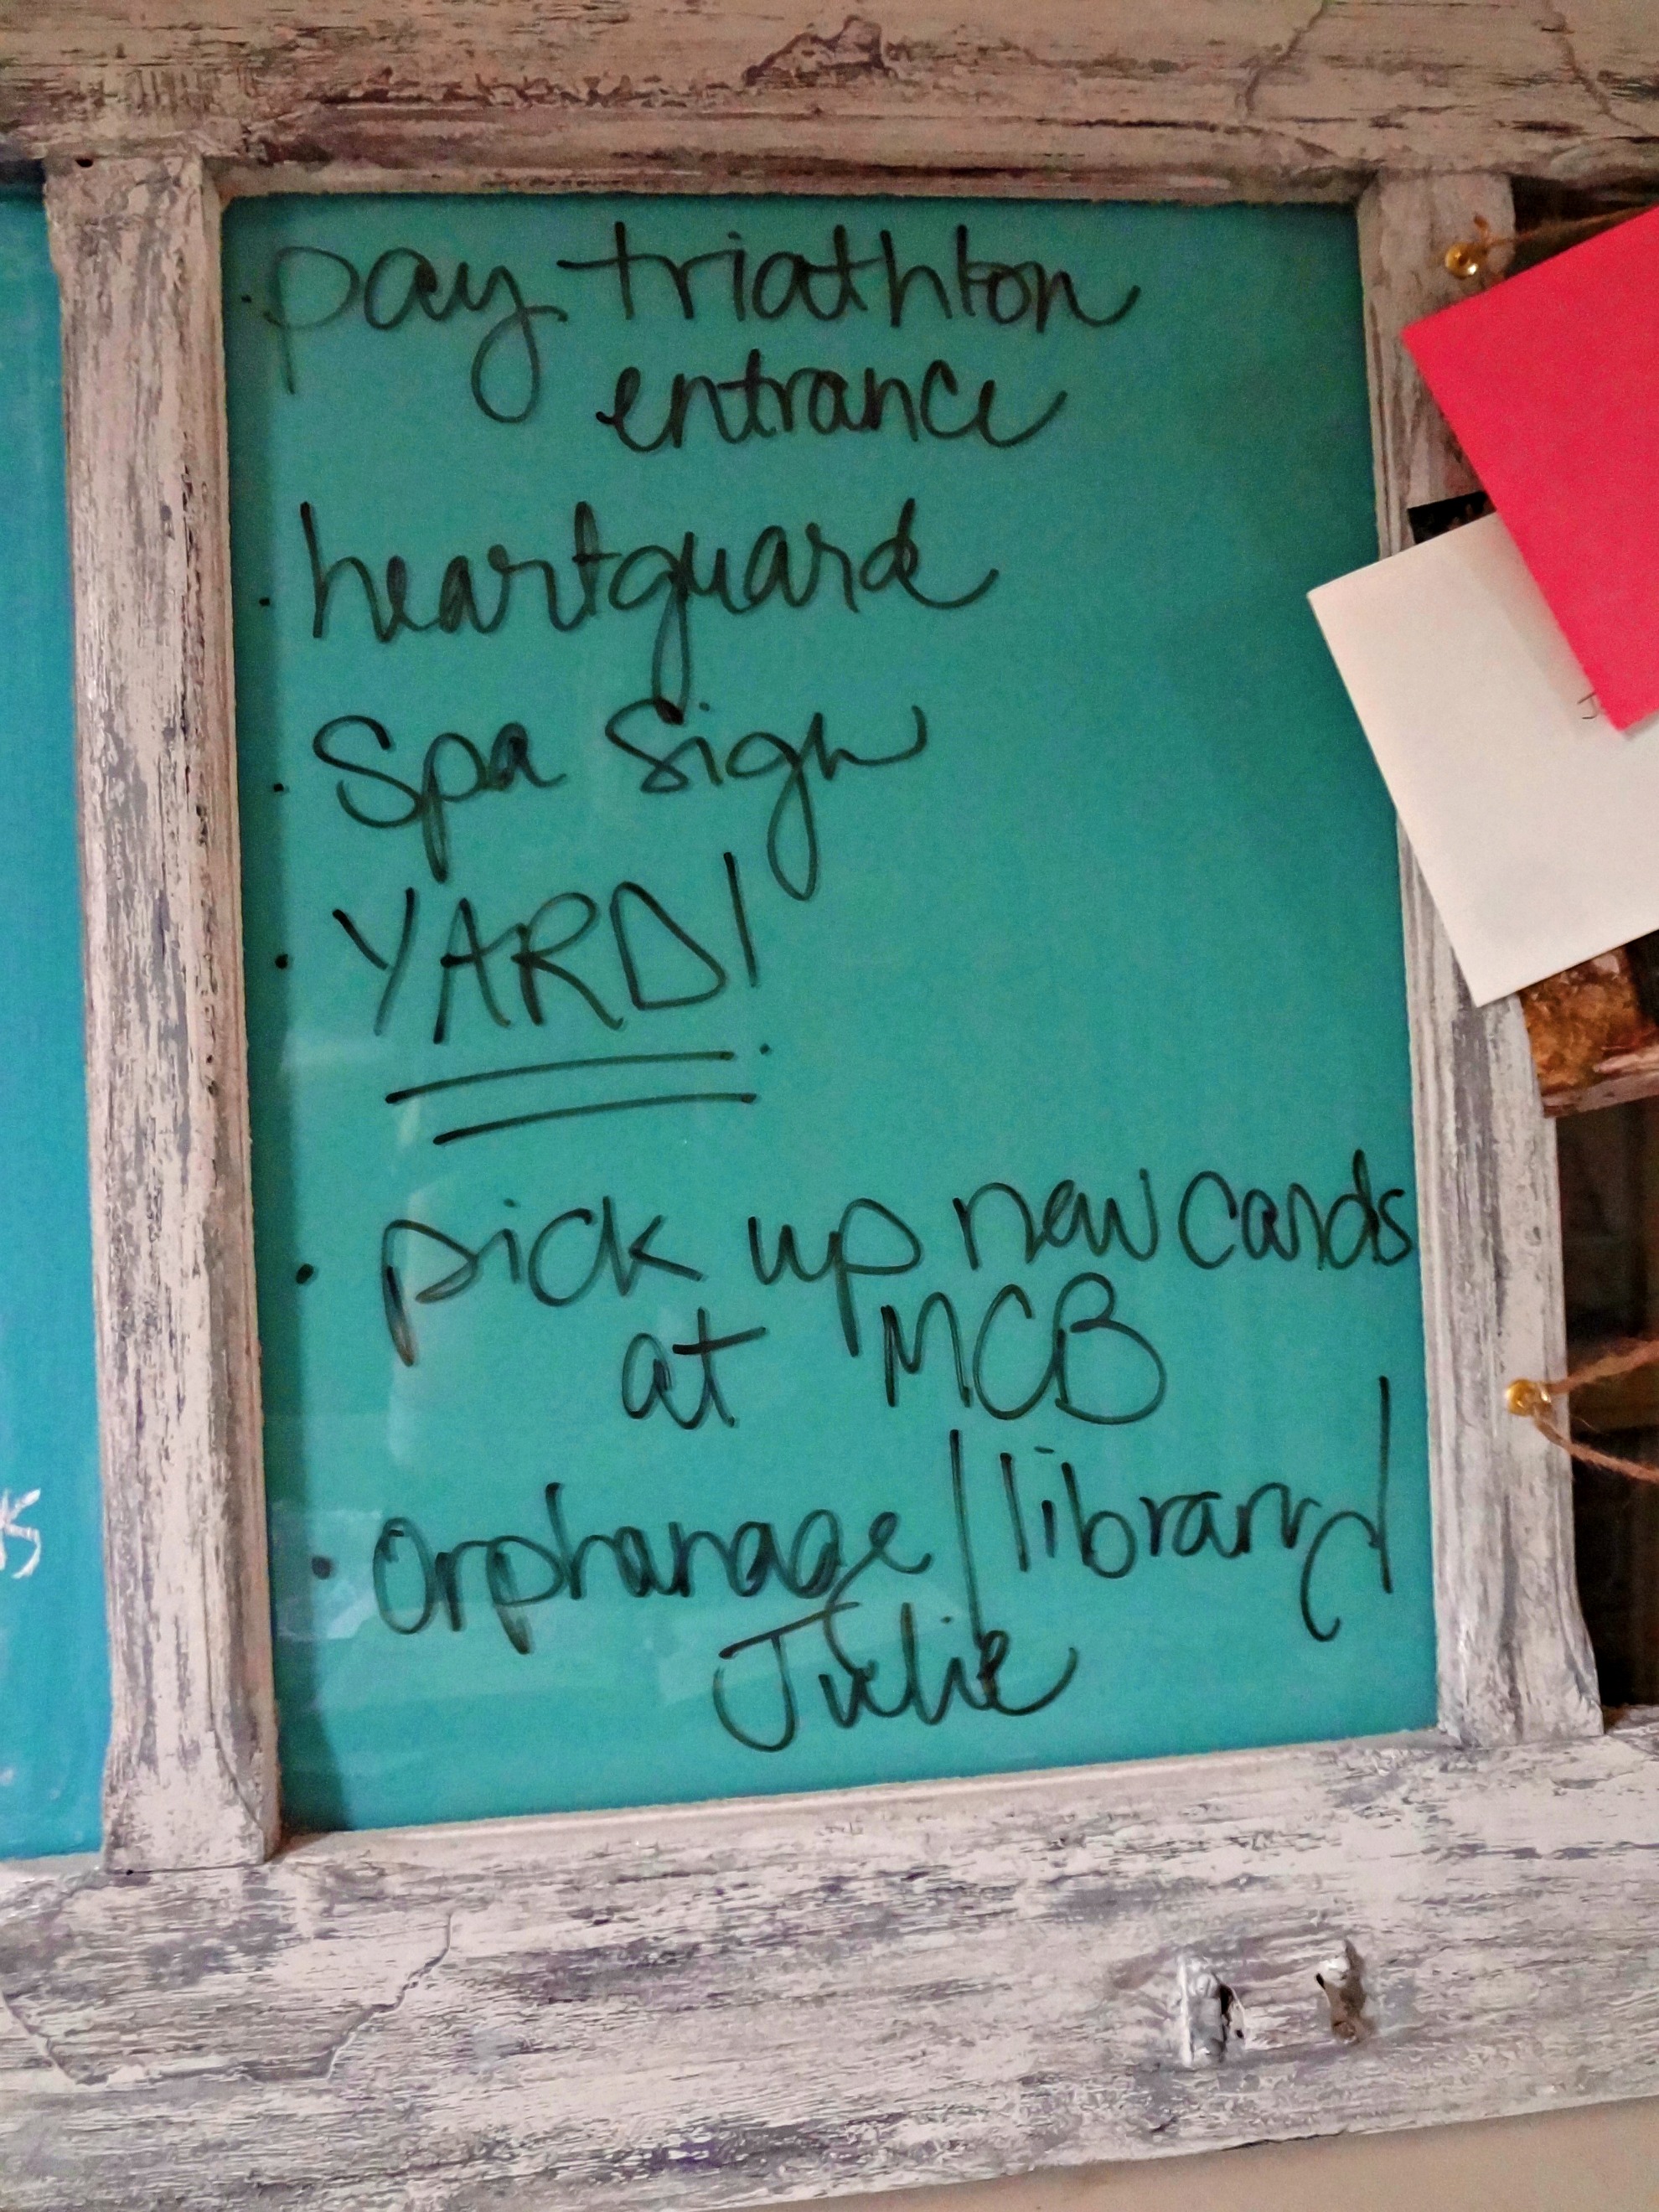 · pay triathlon
entrance
· heartguard
· Spa Sign
· YARD!
· pick up new cards
at MCB
· Orphanage/library/
Julie